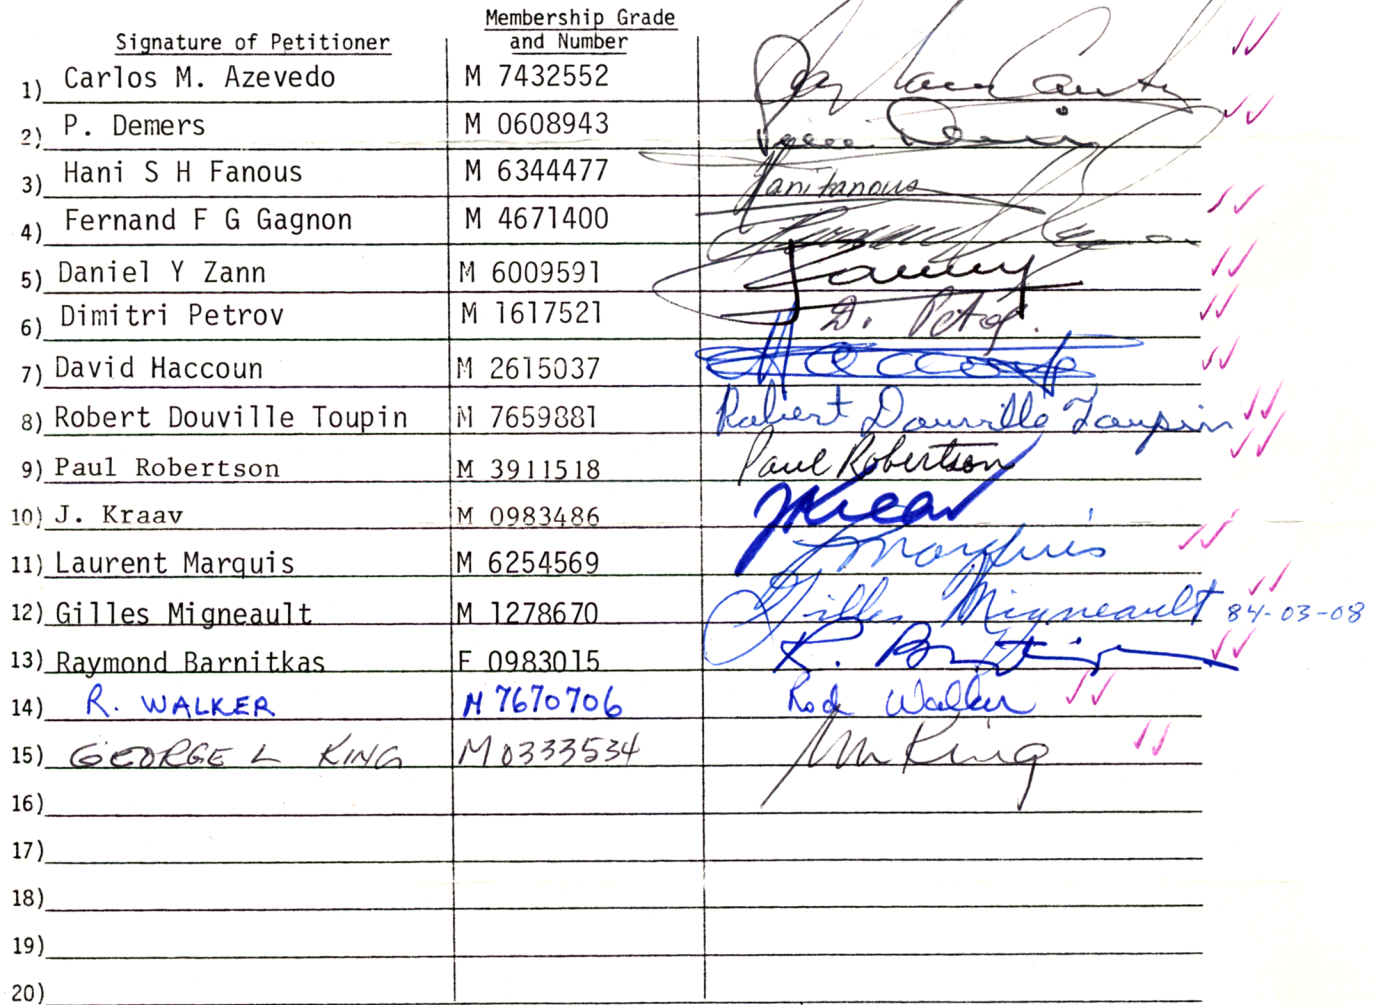 Signature of Petitioner Membership Grade and Number
1) Carlos M. Azevedo M 7432552
2) P. Demers M 0608943
3) Hani S H Fanous M 6344477 Hani Fanous
4) Fernand F G Gagnon M 4671400
5) Daniel Y Zann M 6009591
6) Dimitri Petrov M 1617521 D. Petrov
7) David Haccoun M 2615037 Haccoun
8) Robert Douville Toupin M 7659881 Robert Douville Toupin
9) Paul Robertson M 3911518 Paul Robertson
10) J. Kraav M 0983486 JKraav
11) Laurent Marquis M 6254569 L Marquis
12) Gilles Migneault M 1278670 Gilles Migneault 84-03-08
13) Raymond Barnitkas F 0983015
14) R. WALKER M 7670706 Rod Walker
15) GEORGE L KING M 0333534 King
16)
17)
18)
19)
20)